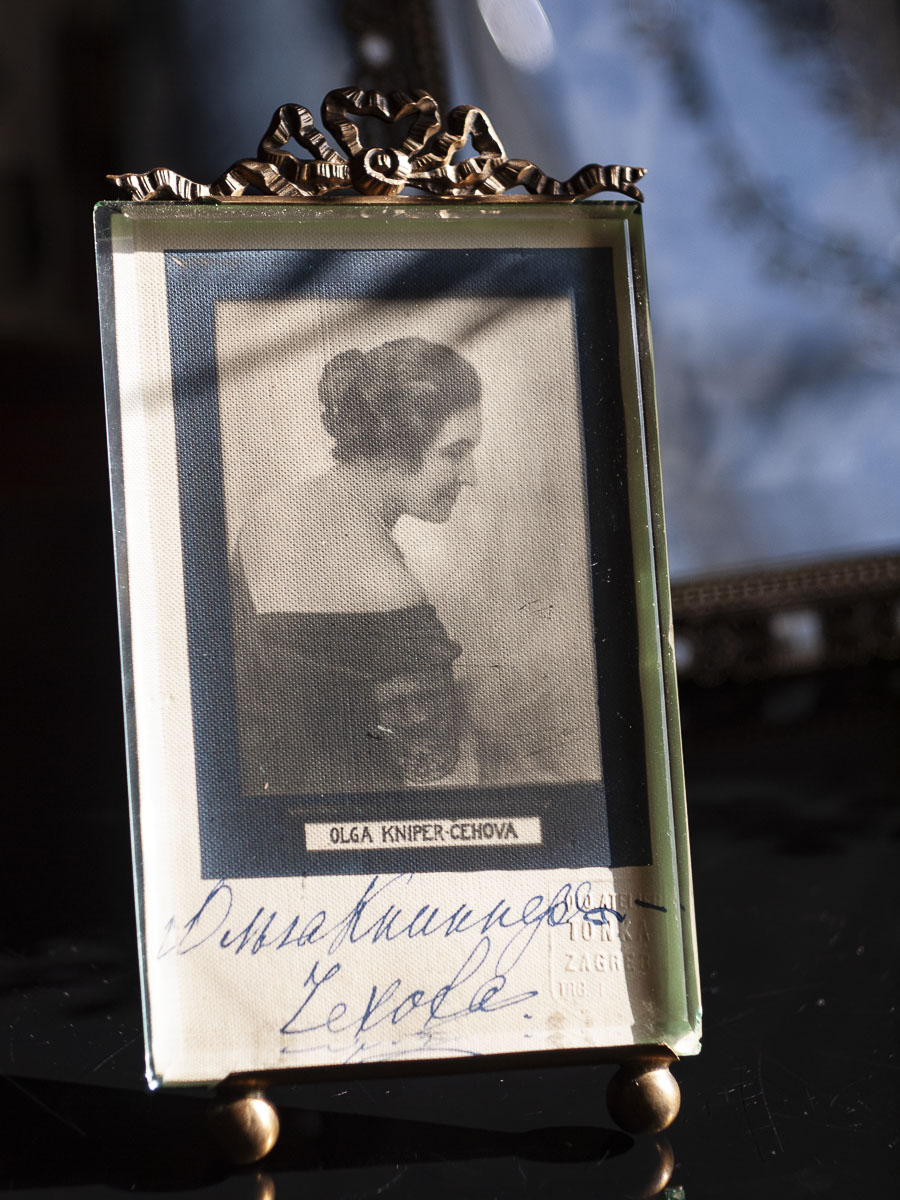 OLGA KNIPER-ČEHOVA
Ольга Книппер-
Чехова.
FOTO ATELIER
TONKA
ZAGREB
TRG I